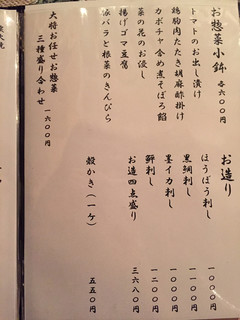 お惣菜小鉢 各六〇〇円
トマトのお出し漬け
鶏胸肉たたき胡麻酢掛け
カボチャ含め煮そぼろ餡
菜の花のお浸し
揚げゴマ豆腐
豚バラと根菜のきんぴら
大将お任せお惣菜
三種盛り合わせ 一六〇〇円
お造り
ほうぼう刺し 一〇〇〇円
黒鯛刺し 一〇〇〇円
墨イカ刺し 一〇〇〇円
鮃刺し 一二〇〇円
お造四点盛り 三六八〇円
殻かき(一ケ) 五五〇円